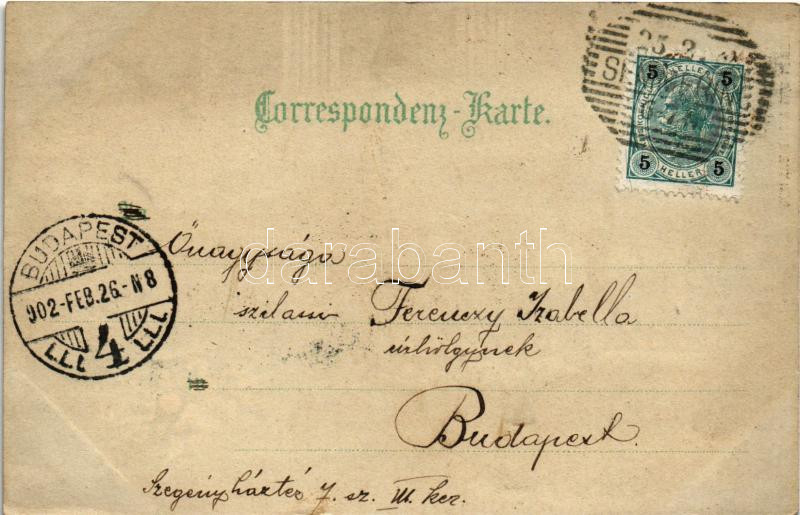 25 2
5 HELLER 5
Correspondenz-Karte.
5 HELLER 5
BUDAPEST
902-FEB.26.-N8
4
Önagysága
darabanth
szilassi Ferenczy Izabella
úrhölgynek
Budapest.
Szegényháztér 7. sz. III. ker.